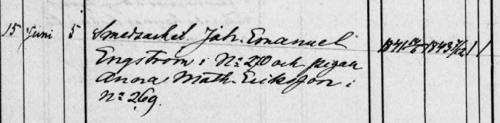 15 Juni 5 Smedsockel. Joh. Emanuel
Engström i No: 270 och pigan
Anna Math. Eriksson i
No: 269.